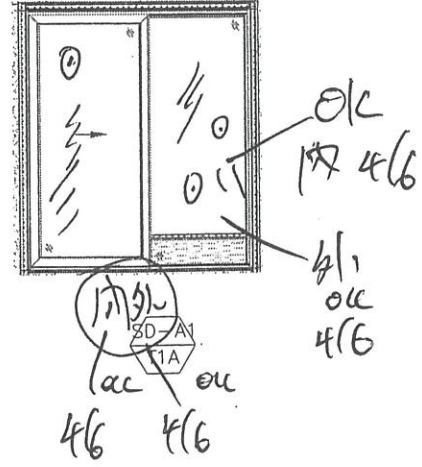 OK
內 4/6
外
OK
4/6
內外
SD-A1
T1A
OK OK
4/6 4/6